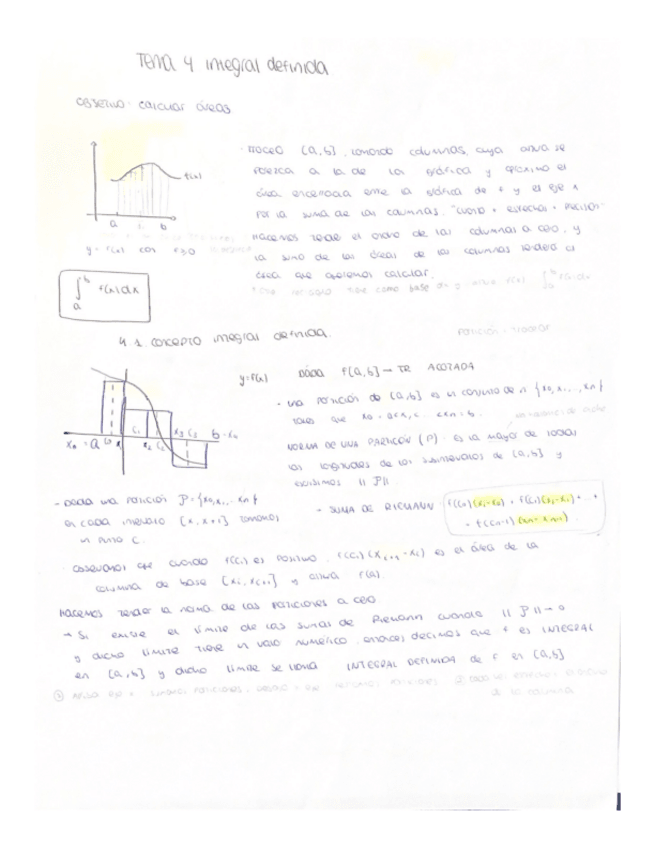 TEMA 4 integral definida
OBJETIVO: calcular áreas
- TROCEO [a,b], tomando columnas, cuya altura se
f(x)
parezca a la de la gráfica y aproximo el
área encerrada entre la gráfica de f y el eje x
a b
por la suma de las columnas. "cuanto + estrechas + precisión"
y = f(x) con
Hacemos tender el ancho de las columnas a cero, y
la suma de las áreas de las columnas tenderá al
área que queremos calcular.
∫ₐᵇ f(x)dx
4.1. concepto integral definida.
PARTICIÓN = TROCEAR
y=f(x)
DADA f[a,b] → IR ACOTADA
- una partición de [a,b] es un conjunto de n {x₀,x₁,...,xₙ}
tales que x₀ = a < x₁ < ... < xₙ = b.
x₀ = a C₀ x₁ C₁ x₂ C₂ b = xₙ
NORMA DE UNA PARTICIÓN (P): es la mayor de todas
las longitudes de los subintervalos de [a,b] y
escribimos ||P||.
- Dada una partición P = {x₀,x₁,... xₙ}
en cada intervalo [xᵢ,xᵢ+1] tomamos
un punto C.
- SUMA DE RIEMANN: f(c₀)(x₁-x₀) + f(c₁)(x₂-x₁) + ... +
+ f(cₙ-1)(xₙ-xₙ-1).
Observamos que cuando f(cᵢ) es positivo, f(cᵢ)(xᵢ₊₁-xᵢ) es el área de la
columna de base [xᵢ, xᵢ₊₁] y altura f(a)
Hacemos tender la norma de las particiones a cero
→ Si existe el límite de las sumas de Riemann cuando ||P|| → 0
y dicho límite tiene un valor numérico, entonces decimos que f es INTEGRAL
en [a,b] y dicho límite se llama INTEGRAL DEFINIDA de f en [a,b]
de la columna